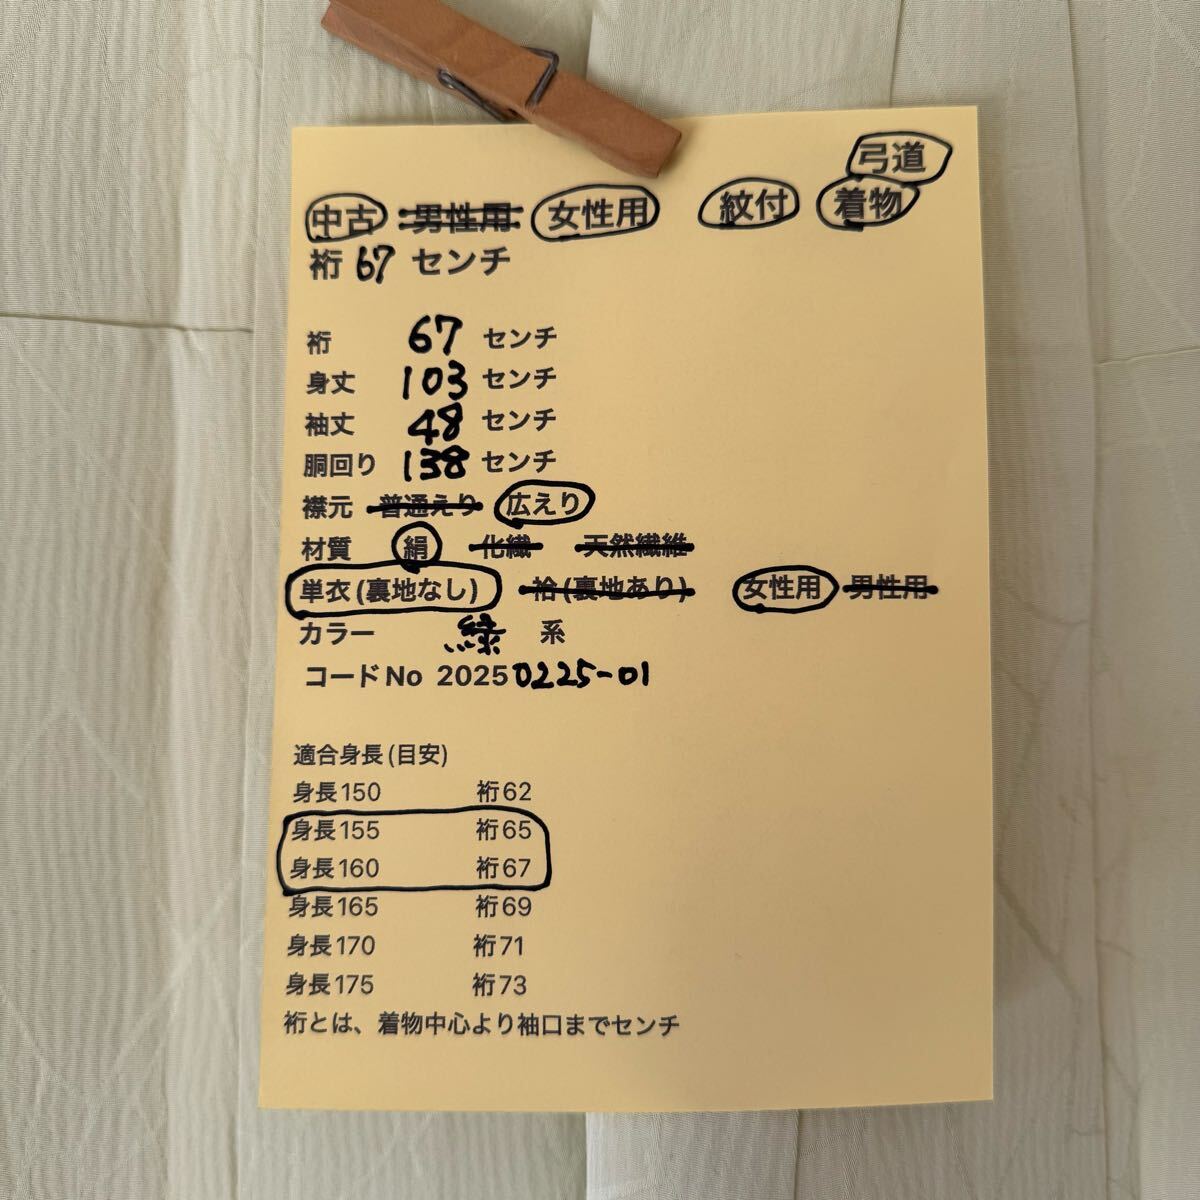 弓道
中古 男性用 女性用 紋付 着物
裄 67 センチ
裄 67 センチ
身丈 103 センチ
袖丈 48 センチ
胴回り 138 センチ
襟元 普通えり 広えり
材質 絹 化繊 天然繊維
単衣(裏地なし) 袷(裏地あり) 女性用 男性用
カラー 緑 系
コードNo 20250225-01
適合身長(目安)
身長150 裄62
身長155 裄65
身長160 裄67
身長165 裄69
身長170 裄71
身長175 裄73
裄とは、着物中心より袖口までセンチ